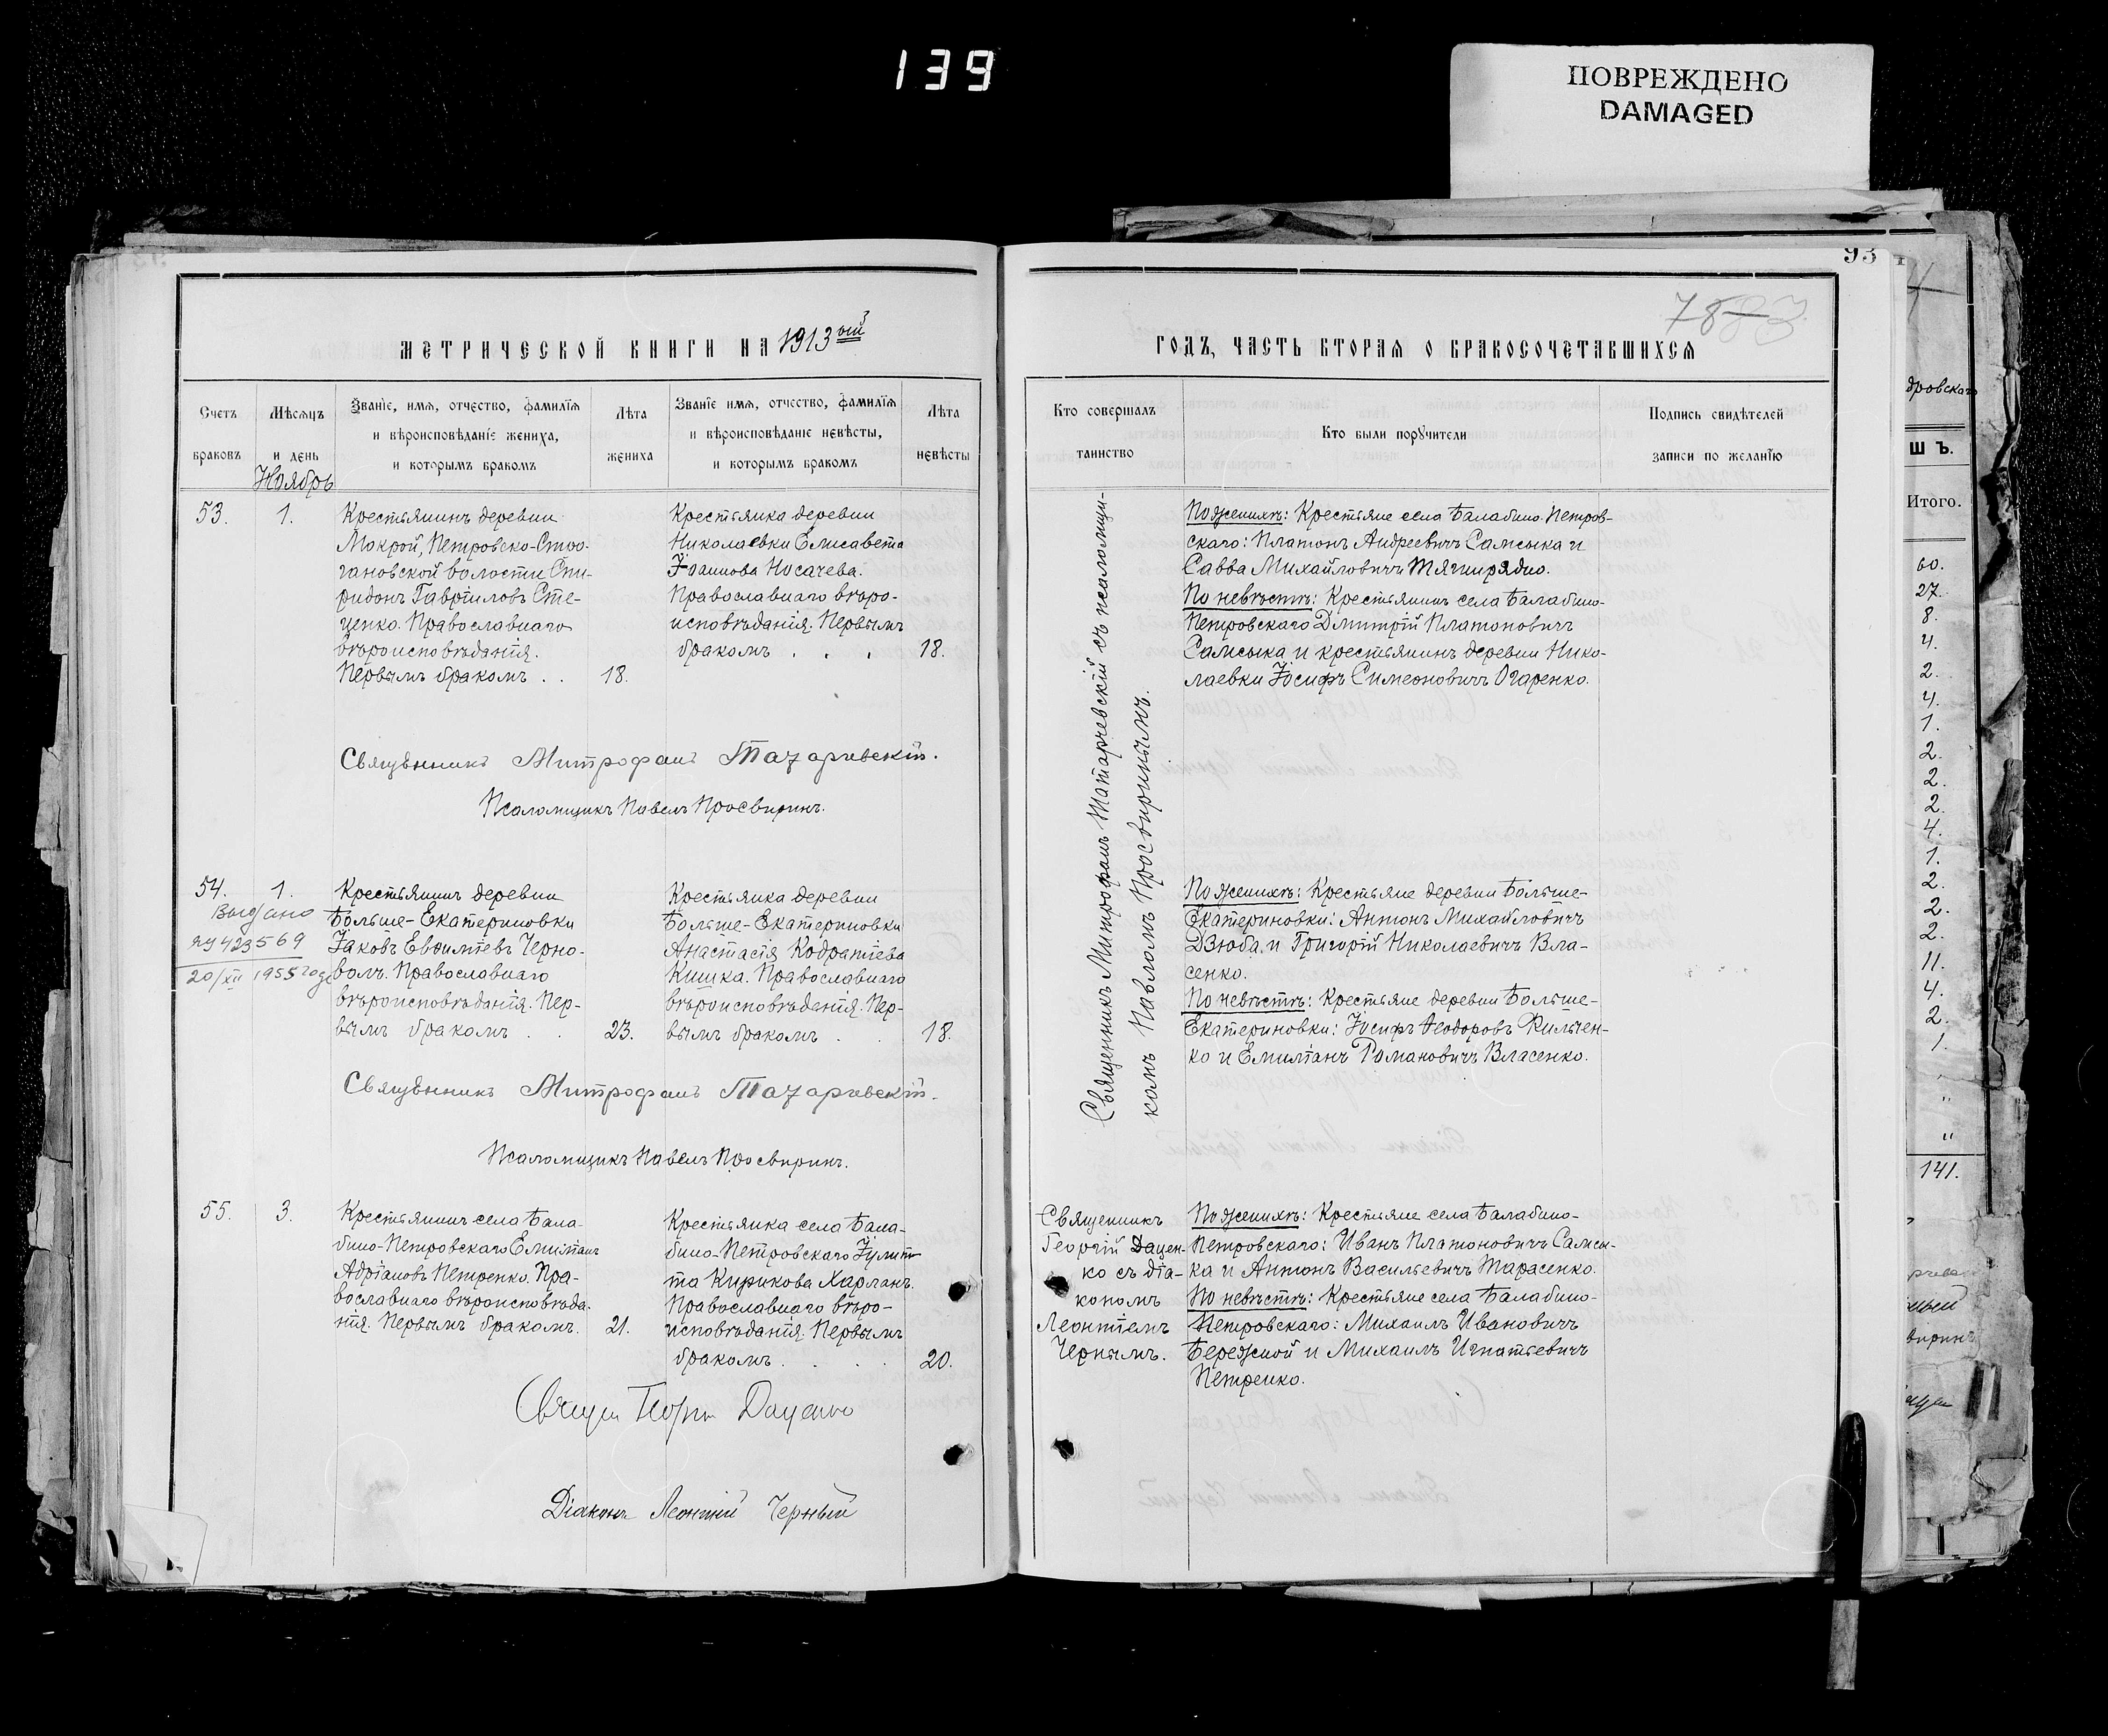 139
ПОВРЕЖДЕНО
DAMAGED
93
78 83
МЕТРИЧЕСКОЙ КНИГИ НА 1913ый
ГОДЪ, ЧАСТЬ ВТОРАЯ О БРАКОСОЧЕТАВШИХСЯ
Счетъ браковъ
Мѣсяцъ и день
Званіе, имя, отчество, фамилія
и вѣроисповѣданіе жениха,
и которымъ бракомъ
Лѣта жениха
Званіе имя, отчество, фамилія
и вѣроисповѣданіе невѣсты,
и которымъ бракомъ
Лѣта невѣсты
Кто совершалъ таинство
Кто были поручители
Подпись свидѣтелей
записи по желанію
Ноябрь
53.
1.
Крестьянинъ деревни
Мокрой, Петровско-Стро-
гановской волости Спи-
ридонъ Гавріиловъ Сте-
ценко. Православнаго
вѣроисповѣданія.
Первымъ бракомъ . .
18.
Крестьянка деревни
Николаевки Елисавета
Іоаннова Носачева.
Православнаго вѣро-
исповѣданія. Первымъ
бракомъ . . .
18.
Священникъ Митрофанъ Татаревскій съ псаломщи-
комъ Павломъ Просвиринымъ.
По женихѣ: Крестьяне села Балабино-Петров-
скаго: Платонъ Андреевичъ Самсыка и
Савва Михайловичъ Тягнирядно.
По невѣстѣ: Крестьянинъ села Балабино-
Петровскаго Дмитрій Платоновичъ
Самсыка и крестьянинъ деревни Нико-
лаевки Іосифъ Симеоновичъ Огаренко.
Священникъ Митрофанъ Татаревскій.
Псаломщикъ Павелъ Просвиринъ.
54.
1.
Выдано
ЯУ 423569
20/XII 1955 года
Крестьянинъ деревни
Больше-Екатериновки
Іаковъ Евфиміевъ Черно-
волъ. Православнаго
вѣроисповѣданія. Пер-
вымъ бракомъ . .
23.
Крестьянка деревни
Больше-Екатериновки
Анастасія Кодратіева
Кишка. Православнаго
вѣроисповѣданія. Пер-
вымъ бракомъ . .
18.
По женихѣ: Крестьяне деревни Больше-
Екатериновки: Антонъ Михайловичъ
Дзюба и Григорій Николаевичъ Вла-
сенко.
По невѣстѣ: Крестьяне деревни Больше-
Екатериновки: Іосифъ Ѳеодоровъ Кильчен-
ко и Емиліанъ Романовичъ Власенко.
Священникъ Митрофанъ Татаревскій.
Псаломщикъ Павелъ Просвиринъ.
55.
3.
Крестьянинъ села Бала-
бино-Петровскаго Емиліанъ
Адріановъ Петренко. Пра-
вославнаго вѣроисповѣда-
нія. Первымъ бракомъ.
21.
Крестьянка села Бала-
бино-Петровскаго Іулит-
та Кирикова Харланъ.
Православнаго вѣро-
исповѣданія. Первымъ
бракомъ . . . .
20.
Священникъ
Георгій Дацен-
ко съ діа-
кономъ
Леонтіемъ
Чернымъ.
По женихѣ: Крестьяне села Балабино-
Петровскаго: Иванъ Платоновичъ Самсы-
ка и Антонъ Васильевичъ Тарасенко.
По невѣстѣ: Крестьяне села Балабино-
Петровскаго: Михаилъ Ивановичъ
Бережной и Михаилъ Игнатьевичъ
Петренко.
Свящ. Георг. Даценко
Діаконъ Леонтій Черный
дровскаго
ШЪ.
Итого.
60.
27.
8.
4.
2.
4.
1.
2.
2.
2.
4.
1.
2.
2.
2.
11.
4.
2.
1.
"
"
"
141.